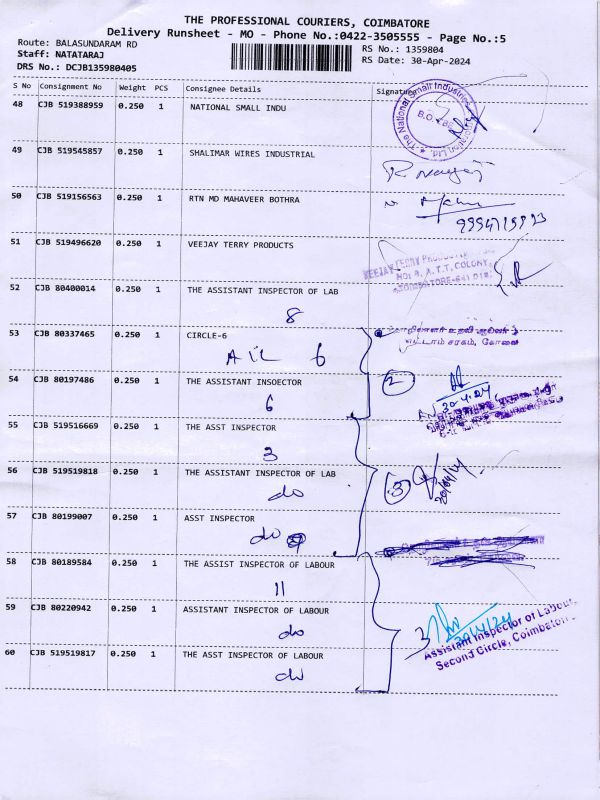 THE PROFESSIONAL COURIERS, COIMBATORE
Delivery Runsheet - MO - Phone No.:0422-3505555 - Page No.:5
Route: BALASUNDARAM RD
RS No.: 1359804
Staff: NATATARAJ
RS Date: 30-Apr-2024
DRS No.: DCJB135980405
S No Consignment No Weight PCS Consignee Details Signature
48 CJB 519388959 0.250 1 NATIONAL SMALL INDU
The National Small Industries
49 CJB 519545857 0.250 1 SHALIMAR WIRES INDUSTRIAL
50 CJB 519156563 0.250 1 RTN MD MAHAVEER BOTHRA
51 CJB 519496620 0.250 1 VEEJAY TERRY PRODUCTS
VEEJAY TERRY
A.T.T. COLONY
COIMBATORE-641 018
52 CJB 80400014 0.250 1 THE ASSISTANT INSPECTOR OF LAB
8
53 CJB 80337465 0.250 1 CIRCLE-6
AIL 6
சரகம், கோவை
54 CJB 80197486 0.250 1 THE ASSISTANT INSOECTOR
6
2
30.4.24
55 CJB 519516669 0.250 1 THE ASST INSPECTOR
3
56 CJB 519519818 0.250 1 THE ASSISTANT INSPECTOR OF LAB
do
3
57 CJB 80199007 0.250 1 ASST INSPECTOR
do
58 CJB 80189584 0.250 1 THE ASSIST INSPECTOR OF LABOUR
11
59 CJB 80220942 0.250 1 ASSISTANT INSPECTOR OF LABOUR
do
3
Assistant Inspector of Labour
Second Circle, Coimbatore
60 CJB 519519817 0.250 1 THE ASST INSPECTOR OF LABOUR
do